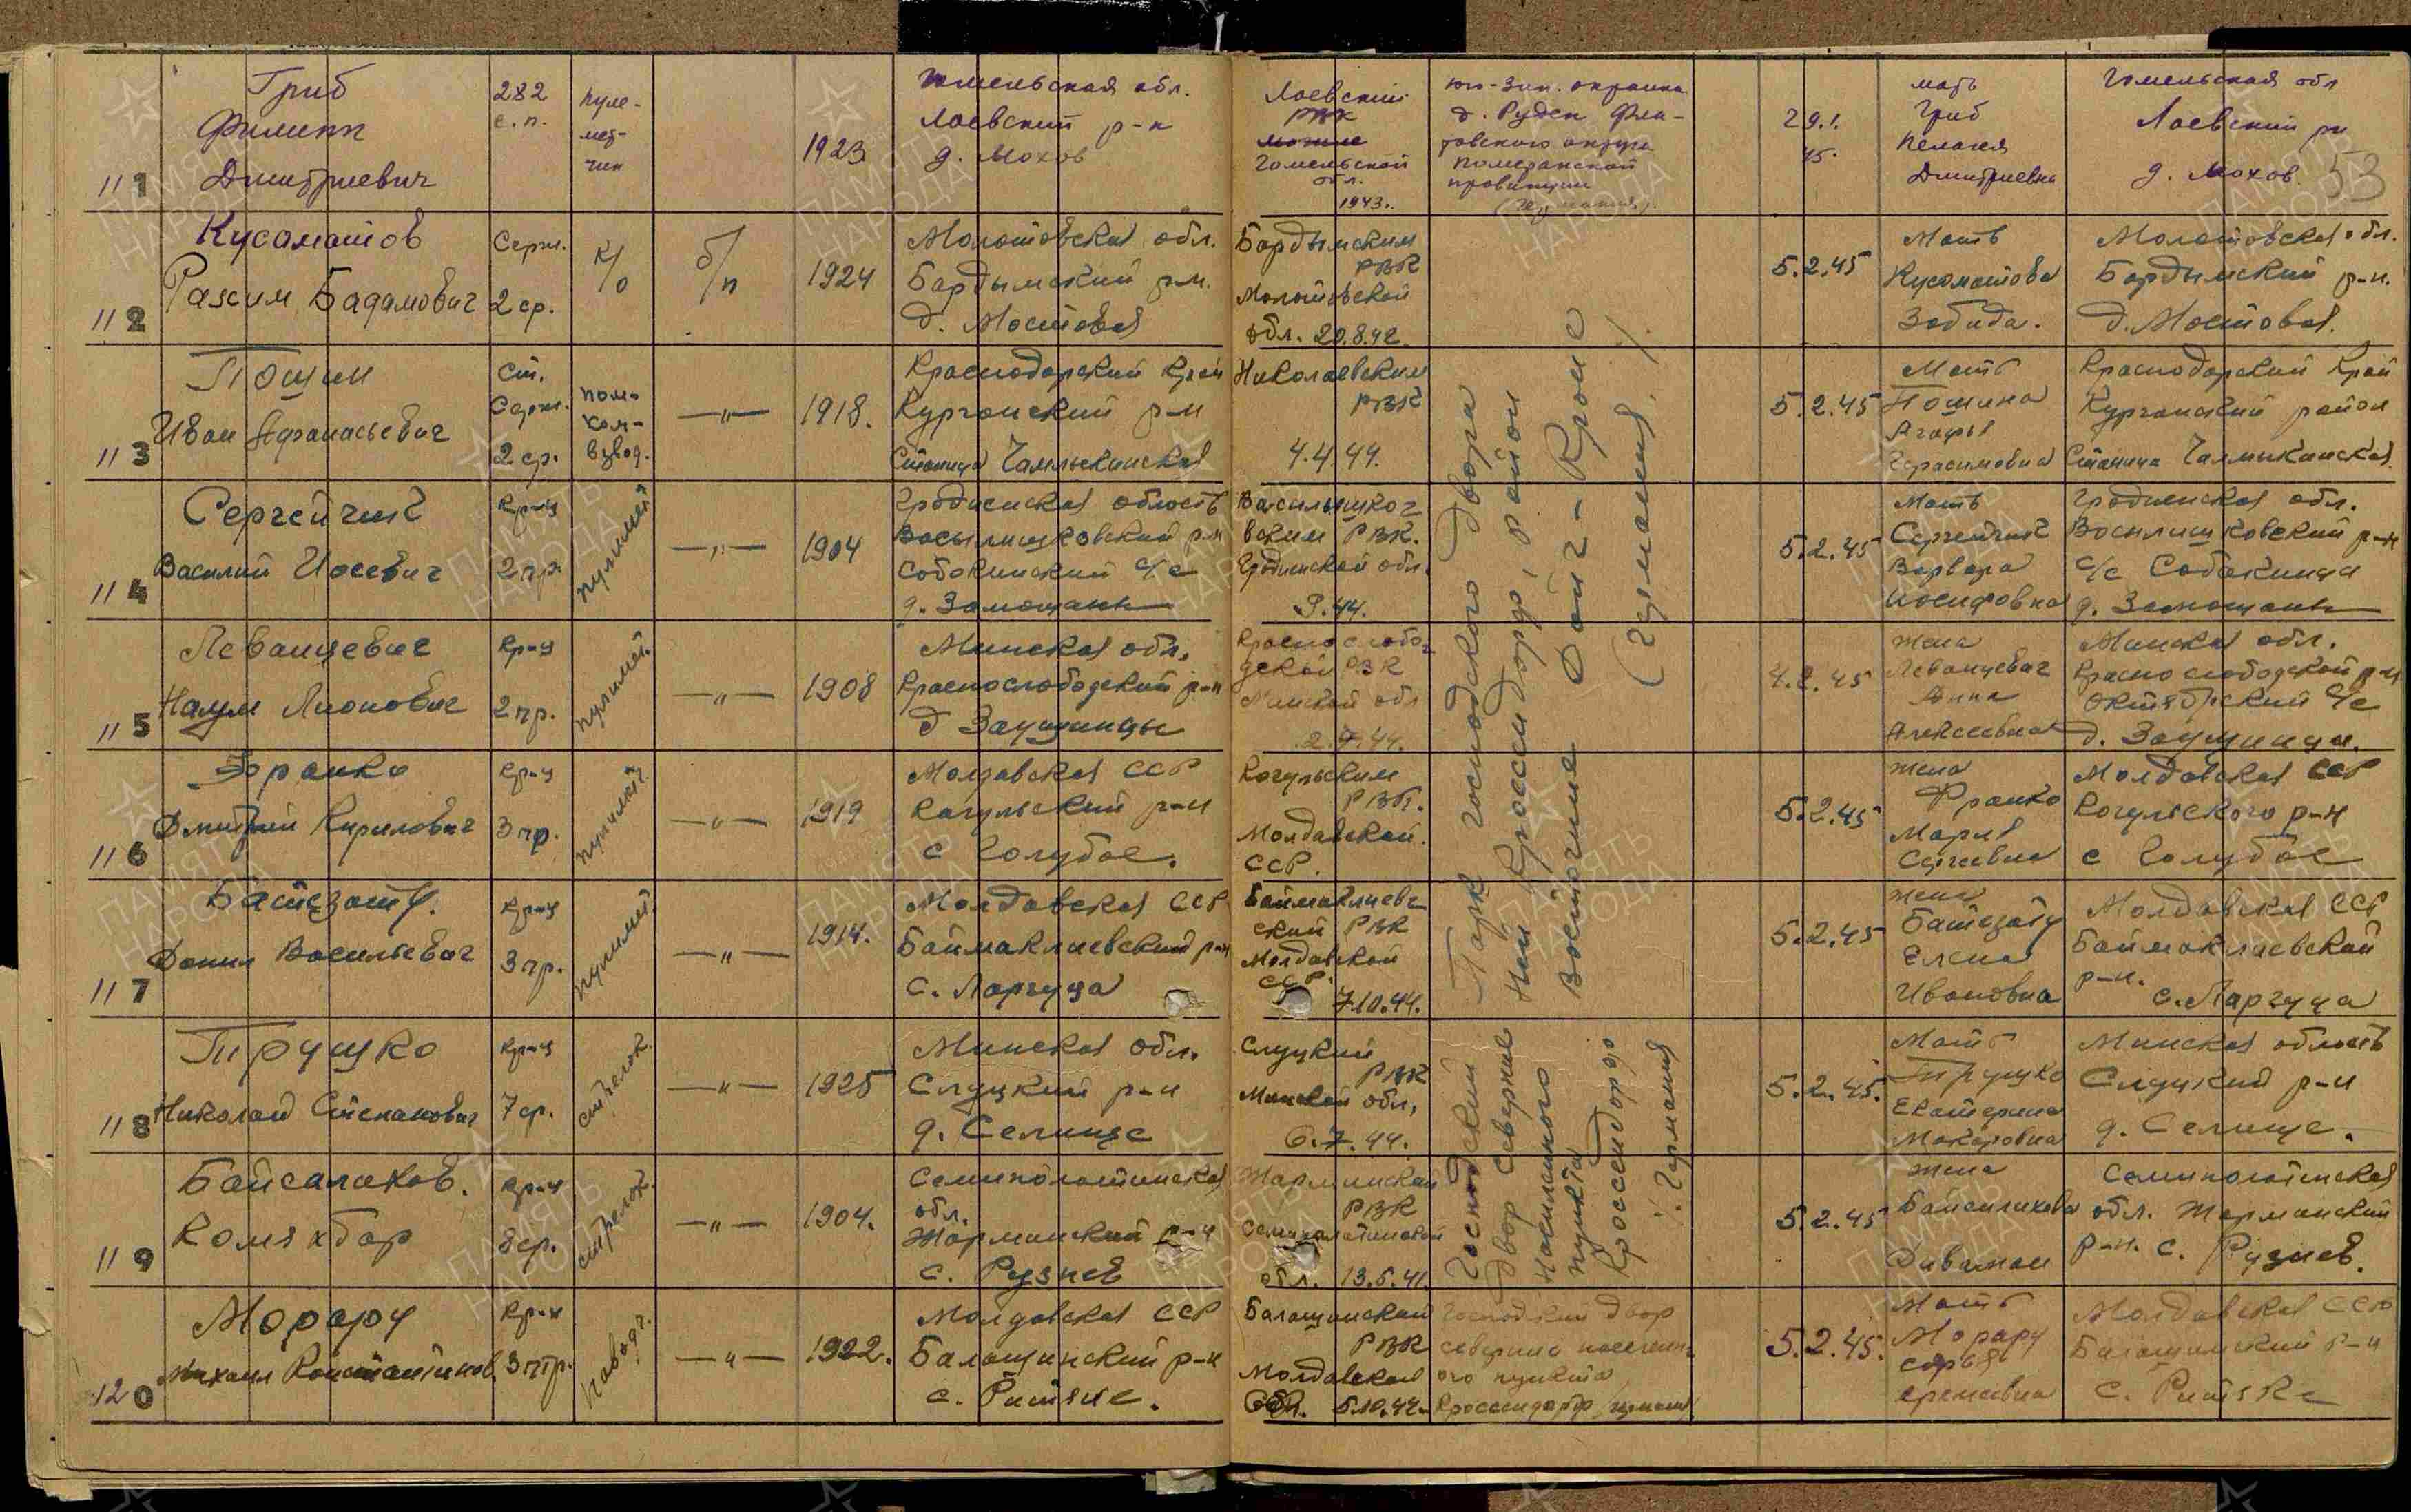 111
Гриб
Филипп
Дмитриевич
282
с.п.
пуле-
мет-
чик
1923
Гомельская обл.
Лоевский р-н
д. Мохов
Лоевский
РВК
Гомельской
обл.
1943г.
Юго-Зап. окраина
д. Руден Фла-
товского округа
Померанской
провинции
(Германия).
29.1.
45.
мать
Гриб
Пелагея
Дмитриевна
Гомельская обл
Лоевский рн
д. Мохов.
53
112
Кусаматов
Рахим Бадамович
Серж.
2 ср.
к/о
б/п
1924
Молотовская обл.
Бардымский р-н.
д. Мостовая
Бардымским
РВК
Молотовской
обл. 20.8.42.
5.2.45
Мать
Кусаматова
Забида.
Молотовская обл.
Бардымский р-н.
д. Мостовая.
113
Тошин
Иван Афанасьевич
Ст.
Серж.
2 ср.
пом.
ком-
взвод.
—„—
1918.
Краснодарский край
Курганский р-н
Станица Чамлыкинская
Николаевским
РВК
4.4.44.
5.2.45
Мать
Тошина
Агафья
Герасимовна
Краснодарский Край
Курганский район
Станица Чалмыкинская
114
Сергейчик
Василий Иосевич
Кр-ц
2 пр.
пулимет
—„—
1904
Гродненская область
Васылишковский р-н
Собокинский с/с
д. Замощаны
Васильшков-
вским РВК.
Гродненской обл.
9.44.
5.2.45
Мать
Сергейчик
Варвара
Иосифовна
Гродненская обл.
Восилишковский р-н
с/с Собакинци
д. Замощаны
115
Леванцевич
Наум Лионович
Кр-ц
2 пр.
пулимет.
—„—
1908
Минская обл.
Краснослободский р-н
д Заушинцы
Краснослобо-
дской РВК
Минской обл
5.2.45
жена
Леванцевич
Анна
Алексеевна
Минская обл.
Краснослободской р-н
Октябрский с/с
д. Заушинци.
116
Франко
Дмитрий Кирилович
Кр-ц
3 пр.
пулимет
—„—
1919
Молдавская ССР
Кагульский р-н
с Голубое.
Когульским
РВК.
Молдавской.
ССР.
5.2.45
жена
Франко
Мария
Сергеевна
Молдавская ССР
Когульского р-н
с Голубое
117
Батезату.
Данил Васильевич
Кр-ц
3 пр.
пулимет
—„—
1914.
Молдавская ССР
Баймаклиевский р-н
с. Ларгуца
Баймаклиевс-
ский РВК
Молдавской
ССР.
7.10.44.
5.2.45
жена
Батезату
Елена
Ивановна
Молдавская ССР
Баймаклиевской
р-н.
с. Ларгуца
Парк господского двора
нп Кроссидорф, район
восточние Дойч-Кроне
(Германия.)
118
Трушко
Николай Степанович
Кр-ц
7 ср.
стрелок.
—„—
1925
Минская обл.
Слуцкий р-н
д. Селище
Слуцкий
РВК
Минской обл,
6.7.44.
5.2.45.
Мать
Трушко
Екатерина
Макаровна
Минская область
Слуцкий р-н
д. Селище.
119
Байсалаков.
Комяхбар
Кр-ц
8 ср.
стрелок.
—„—
1904.
Семиполатинская
обл.
Жарминский р-н
с. Рузиев
Жарминский
РВК
Семиполатинской
обл. 13.6.41.
5.2.45
жена
Байсалакова
Семиполатинская
обл. Жарминский
р-н. с. Рузиев.
Господский
двор севернее
Населенного
пункта
Кроссидорф
Германия
120
Морару
Михаил Константинов.
Кр-ц
3 птр.
наводч.
—„—
1922.
Молдавская ССР
Балащинский р-н
с. Питяне.
Балащинский
РВК
Молдавская
ССР. 5.10.44.
Господский двор
севернее населенн-
ого пункта
Кроссидорф Германия
5.2.45.
Мать
Морару
Софья
Еремеевна
Молдавская ССР
Балащинский р-н
с.
ПАМЯТЬ
НАРОДА